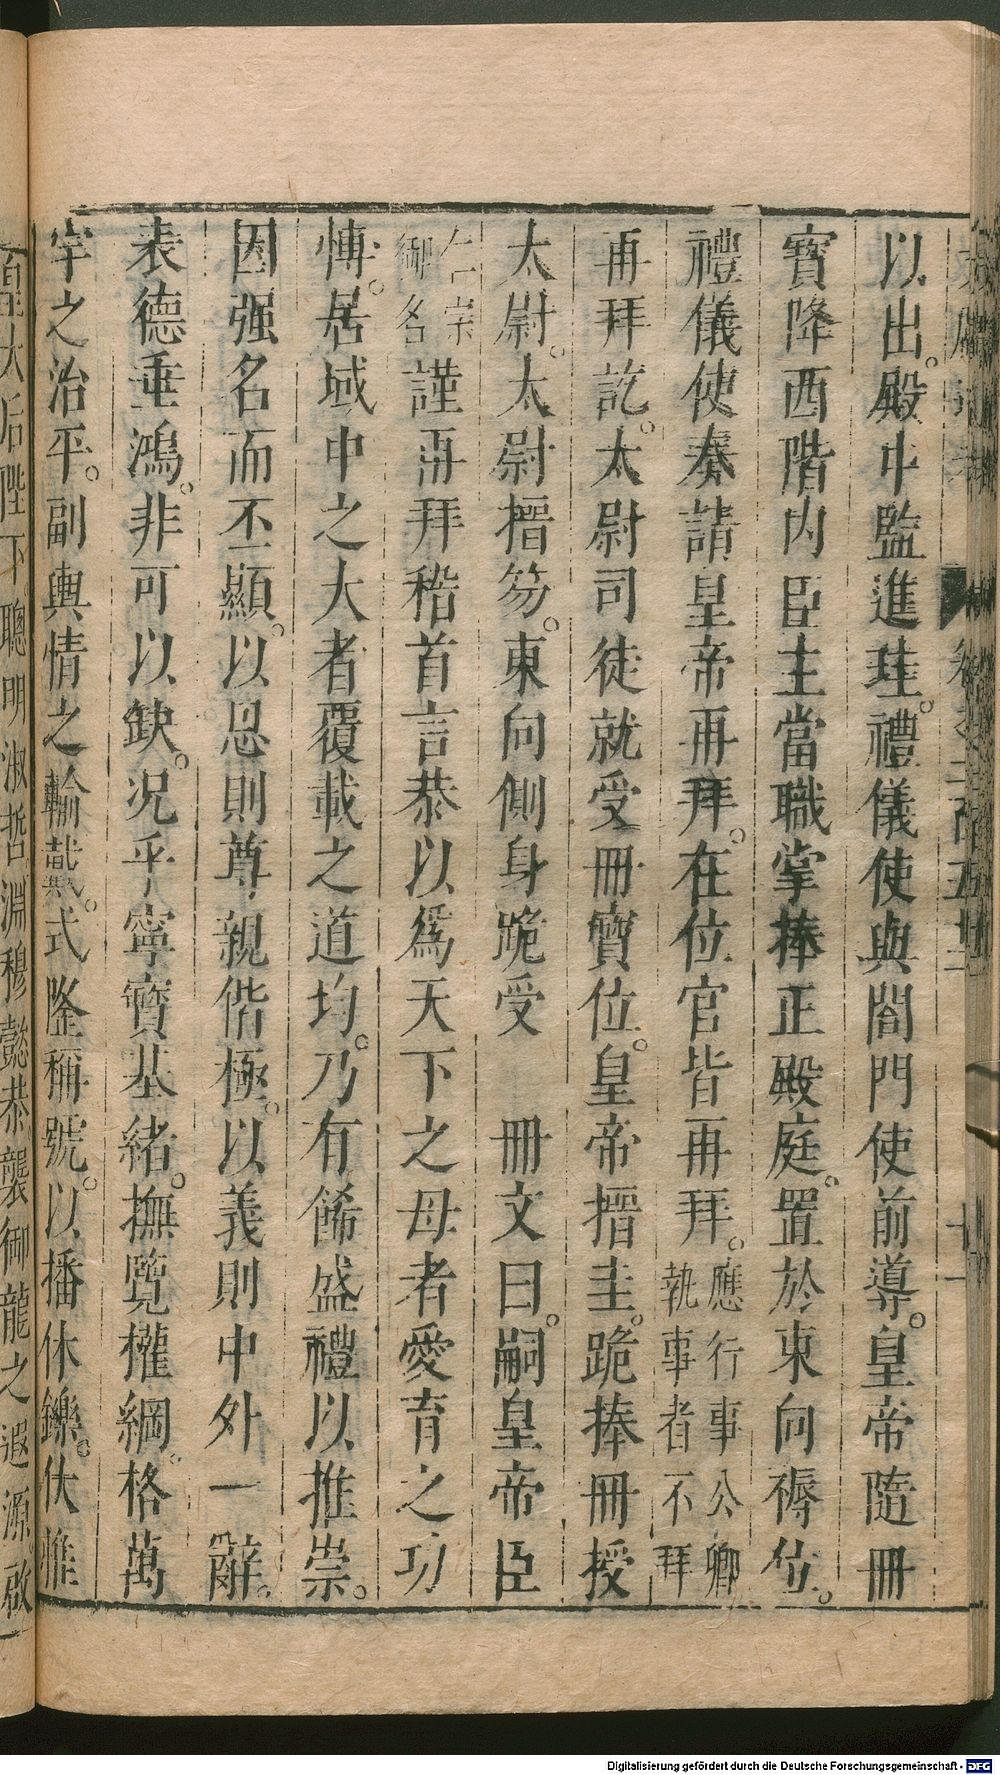 以出。殿中監進珪。禮儀使與閤門使前導。皇帝隨冊
寶降西階内臣主當職掌捧正殿庭。置於東向褥位。
禮儀使奏請皇帝再拜。在位官皆再拜。應行事公卿執事者不拜
再拜訖。太尉司徒就受冊寶位。皇帝搢圭。跪捧冊授
太尉。太尉搢笏。東向側身跪受　冊文曰。嗣皇帝臣
仁宗御名謹再拜稽首言恭以爲天下之母者愛育之功
博。居域中之大者覆載之道均。乃有餙盛禮以推崇。
因强名而不顯。以恩則尊親偕極。以義則中外一辭。
表德垂鴻。非可以缺。况乎寧寶基緒。撫覽權綱。格萬
宇之治平。副輿情之輸戴。式隆稱號。以播休鑠。伏惟
皇太后陛下聰明淑哲淵穆懿恭襲御龍之遐源啟
Digitalisierung gefördert durch die Deutsche Forschungsgemeinschaft - DFG